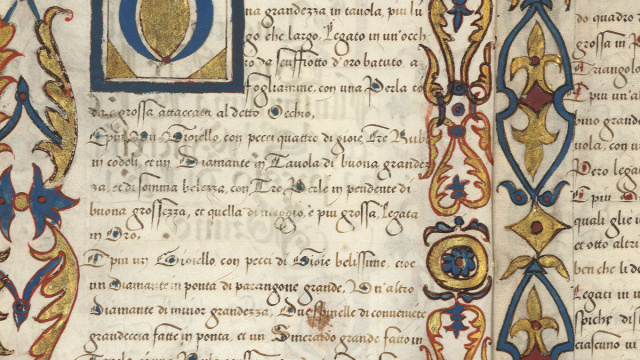 na grandezza in tauola, piu lu
go che largo, Legato in un'occh
ro da scuffiotto d'oro batuto a
fogliamme, con una Perla to
da, e grossa attaccata al detto Occhio,
E piu Un Gioiello, con pecci quattro di gioie, Tre Rub
in codoli, et un Diamante in Tauola di buona grandez
za, et di somma belezza, con Tre Perle in pendente di
buona grossezza, et quella di meggio, è piu grossa, Legata
in Oro,
E piu un Gioiello con pecci di Gioie belissime, cioe
un Diamante in ponta di parangone grande, Un'altro
Diamante di minor grandezza, Due spinelle di conueniete
grandeccia fatte in ponta, et un Smeraldo grande fatto in
do quadro
grossa in P
Triangolo
E piu un'al
bino grande
uola, con u
Pero legat
E piu
quali glie u
et otto altri
ben che li d
Legati in u
spiche, di f
ciascuno u